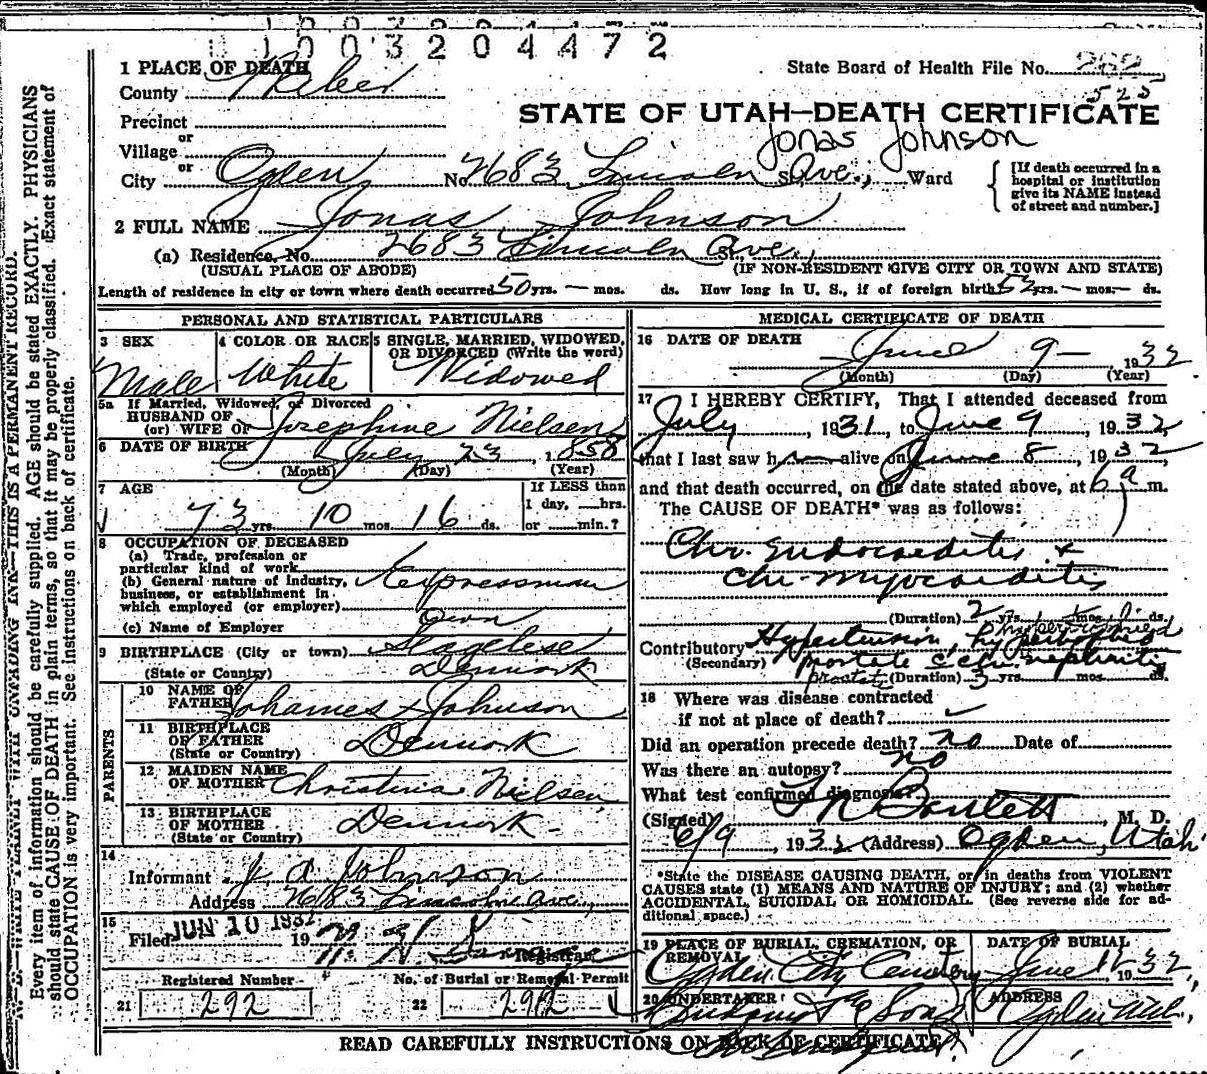 1003204472
1 PLACE OF DEATH
County Weber
State Board of Health File No. 262
525
Precinct
STATE OF UTAH—DEATH CERTIFICATE
or
Village
Jonas Johnson
or
City Ogden No. 2683 Lincoln St. Ave., Ward
[If death occurred in a hospital or institution give its NAME instead of street and number.]
2 FULL NAME Jonas Johnson
(a) Residence. No. 2683 Lincoln Ave., St.
(USUAL PLACE OF ABODE) (IF NON-RESIDENT GIVE CITY OR TOWN AND STATE)
Length of residence in city or town where death occurred 50 yrs. — mos. ds. How long in U. S., if of foreign birth? 53 yrs. — mos. — ds.
PERSONAL AND STATISTICAL PARTICULARS
3 SEX Male
4 COLOR OR RACE White
5 SINGLE, MARRIED, WIDOWED, OR DIVORCED (Write the word) Widowed
5a If Married, Widowed, or Divorced
HUSBAND OF
(or) WIFE OF Josephine Nielsen
6 DATE OF BIRTH July 23, 1858
(Month) (Day) (Year)
7 AGE
73 yrs. 10 mos. 16 ds.
If LESS than
1 day, hrs.
or min.?
8 OCCUPATION OF DECEASED
(a) Trade, profession or
particular kind of work
(b) General nature of industry, Expressman
business, or establishment in
which employed (or employer)
(c) Name of Employer Own
9 BIRTHPLACE (City or town) Slagelese
(State or Country) Denmark
PARENTS
10 NAME OF
FATHER Johannes Johnson
11 BIRTHPLACE
OF FATHER Denmark
(State or Country)
12 MAIDEN NAME
OF MOTHER Christina Nielsen
13 BIRTHPLACE
OF MOTHER Denmark.
(State or Country)
14
Informant J A Johnson
Address 2683 Lincoln Ave.,
15
Filed JUN 10 1932 19
Registrar
Registered Number
21 292
No. of Burial or Removal Permit
22 292
MEDICAL CERTIFICATE OF DEATH
16 DATE OF DEATH
June 9— 1932
(Month) (Day) (Year)
17 I HEREBY CERTIFY, That I attended deceased from
July, 1931, to June 9, 1932,
that I last saw h alive on June 8, 1932
and that death occurred, on the date stated above, at 6 a m.
The CAUSE OF DEATH* was as follows:
Chr. Endocarditis &
Chr. Myocarditis
(Duration) 2 yrs. mos. ds.
Contributory Hypertension, hypertrophied
(Secondary) prostate c chr. nephritis
prostate (Duration) 3 yrs. mos. ds.
18 Where was disease contracted
if not at place of death?
Did an operation precede death? no Date of
Was there an autopsy? no
What test confirmed diagnosis?
(Signed) Bartlett, M. D.
6/9, 1932 (Address) Ogden, Utah
*State the DISEASE CAUSING DEATH, or in deaths from VIOLENT
CAUSES state (1) MEANS AND NATURE OF INJURY; and (2) whether
ACCIDENTAL, SUICIDAL OR HOMICIDAL. (See reverse side for ad-
ditional space.)
19 PLACE OF BURIAL, CREMATION, OR
REMOVAL
Ogden City Cemetery
DATE OF BURIAL
June 12 1932,
20 UNDERTAKER
& Sons
ADDRESS
Ogden Utah,
READ CAREFULLY INSTRUCTIONS ON BACK OF CERTIFICATE
N. B.—WRITE PLAINLY WITH UNFADING INK—THIS IS A PERMANENT RECORD.
Every item of information should be carefully supplied. AGE should be stated EXACTLY. PHYSICIANS
should state CAUSE OF DEATH in plain terms, so that it may be properly classified. Exact statement of
OCCUPATION is very important. See instructions on back of certificate.